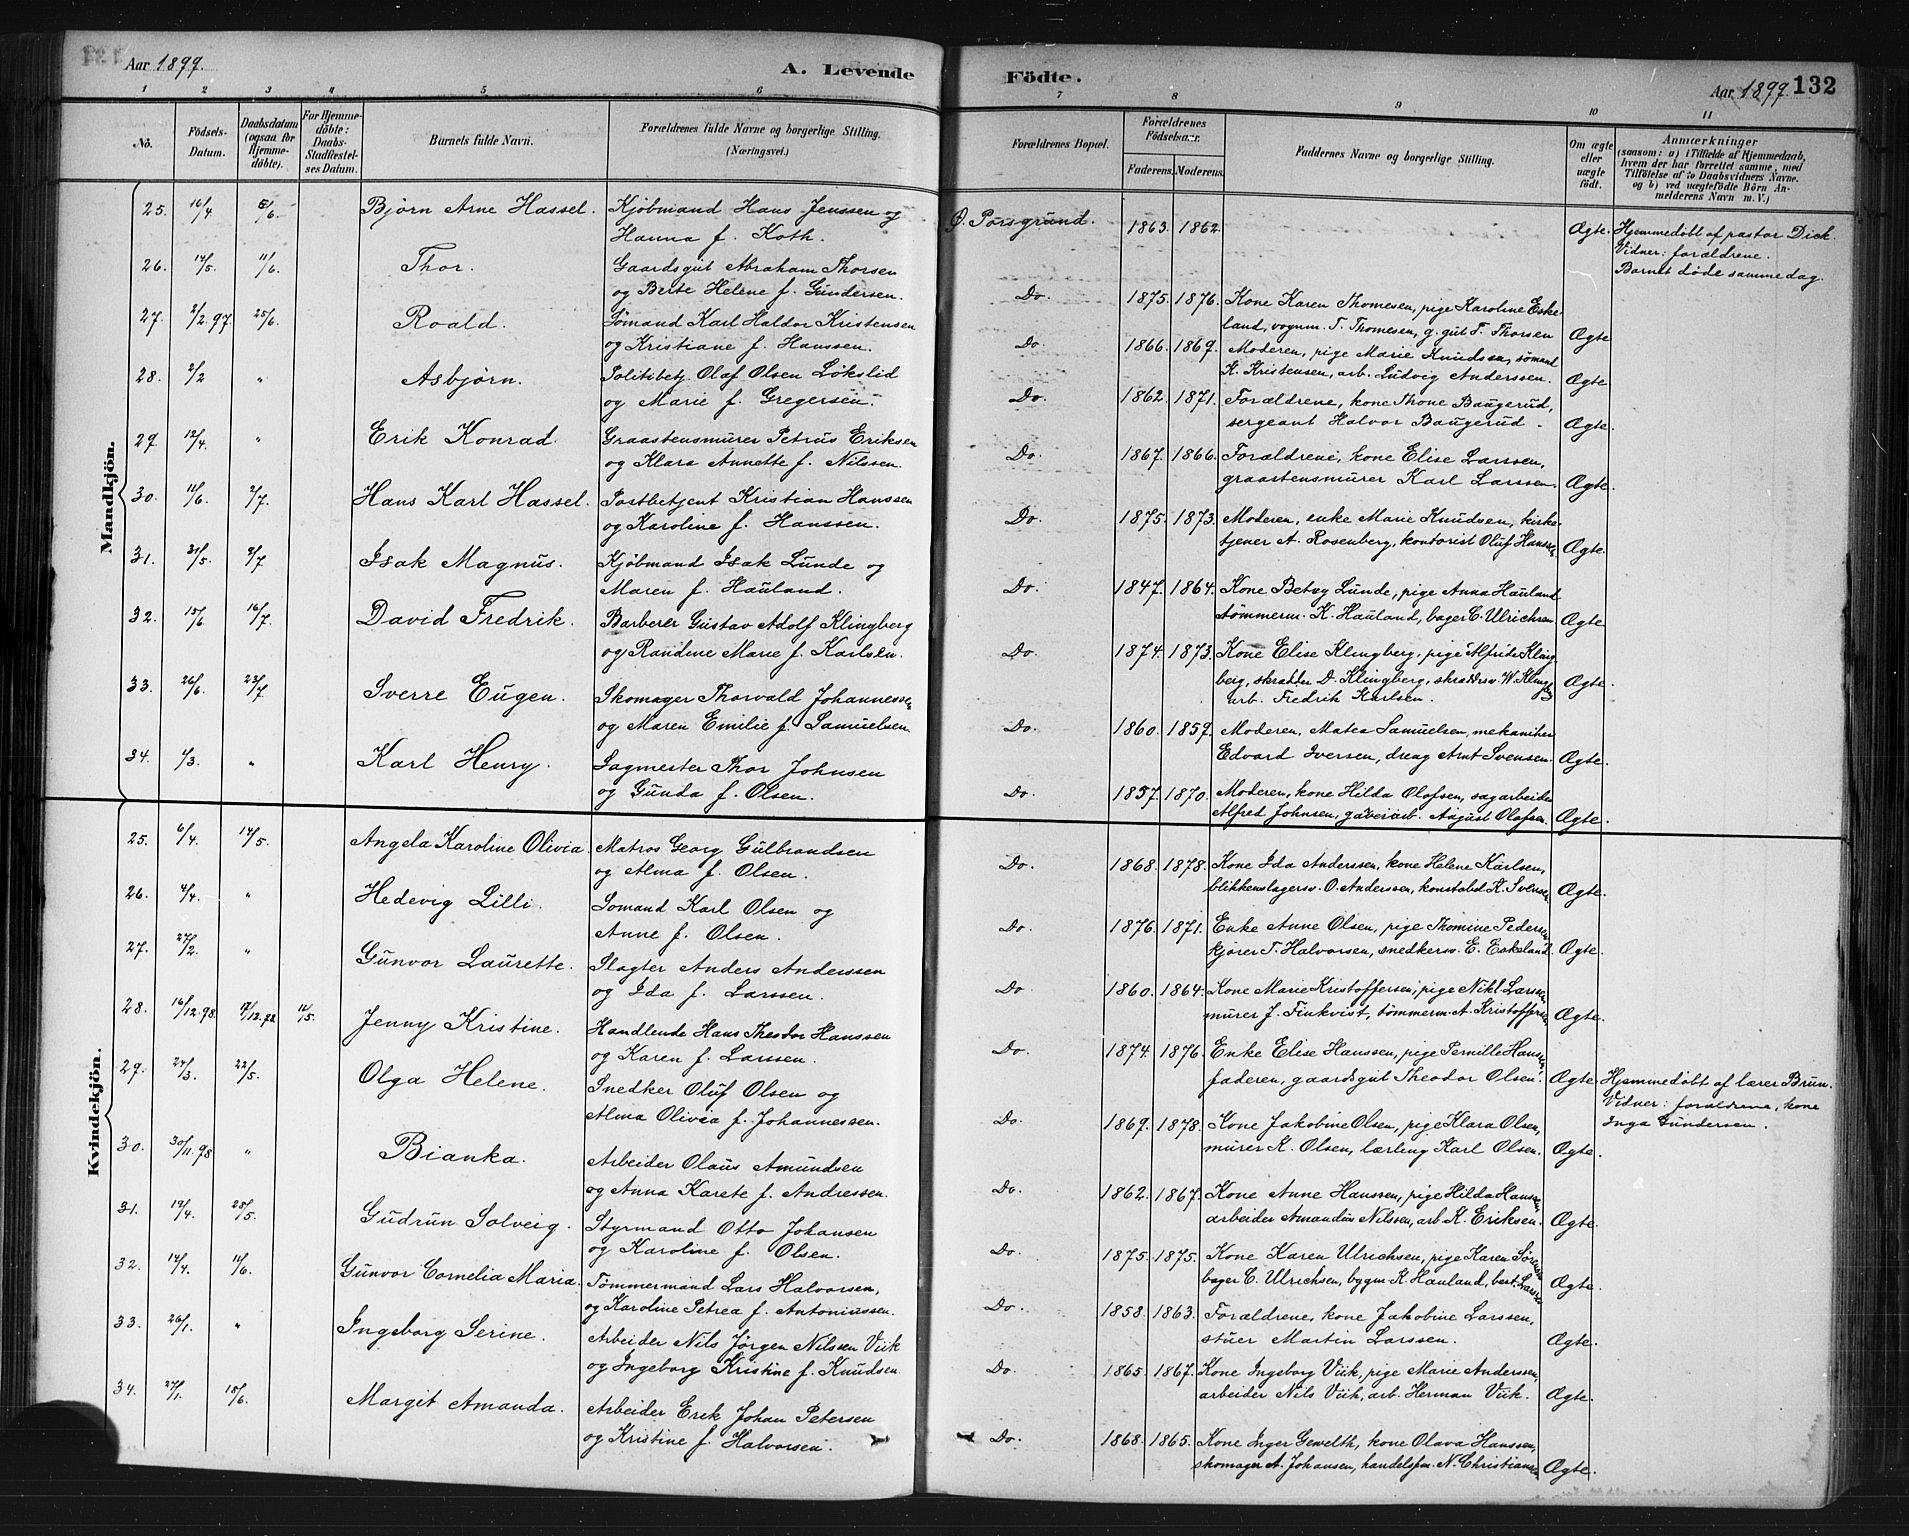 Aar 1899.
A. Levende
Födte.
Aar 1899. 132
1 2 3 4 5 6 7 8 9 10 11
No.
Födsels-Datum.
Daabsdatum (ogsaa for Hjemme-döbte).
For Hjemme-döbte: Daabs-Stadfæstel-ses Datum.
Barnets fulde Navn.
Forældrenes fulde Navne og borgerlige Stilling. (Næringsvei.)
Forældrenes Bopæl.
Forældrenes Födselsaar.
Faderens. Moderens.
Faddernes Navne og borgerlige Stilling.
Om ægte eller uægte födt.
Anmærkninger
(saasom: a) i Tilfælde af Hjemmedaab,
hvem der har forrettet samme, med
Tilföielse af to Daabsvidners Navne.
og b) ved uægtefödte Börn An-
melderens Navn m. V.)
Mandkjön.
25. 16/4 5/6. Bjørn Arne Hassel. Kjöbmand Hans Jenssen og
Hanna f. Koth.
Ø. Porsgrund. 1863. 1862. Ægte. Hjemmedöbt af pastor Dick.
Vidner: forældrene.
Barnet döde samme dag.
26. 14/5. 11/6. Thor. Gaardsgut Abraham Thorsen
og Berte Helene f. Gundersen.
Do. 1875. 1876. Kone Karen Thomesen, pige Karoline Eske-
land, vognm. T. Thomesen, g. gut T. Thorsen Ægte
27. 2/2.97. 25/6. Roald. Sømand Karl Haldor Kristensen
og Kristiane f. Hanssen.
Do. 1866. 1869. Moderen, pige Marie Knudsen, sømand
K. Kristensen, arb. Ludvig Anderssen. Ægte.
28. 2/2 " Asbjørn. Politibetj. Olaf Olsen Løkslid
og Marie f. Gregersen.
Do. 1862. 1871. Forældrene, kone Thone Baugerud,
sergeant Halvor Baugerud. Ægte.
29. 12/4. " Erik Konrad. Graastensmurer Petrus Eriksen
og Klara Annette f. Nilssen.
Do. 1867. 1866. Forældrene, kone Elise Larssen,
graastensmurer Karl Larssen. Ægte.
30. 11/6. 2/7. Hans Karl Hassel. Postbetjent Kristian Hanssen
og Karoline f. Hanssen.
Do. 1875. 1873. Moderen, enke Marie Knudsen, kirke-
tjener A. Rosenberg, kontorist Oluf Hanssen Ægte.
31. 31/5. 9/7 Isak Magnus. Kjöbmand Isak Lunde og
Maren f. Hauland.
Do. 1847. 1864. Kone Betzy Lunde, pige Anna Hauland
tömmerm. K. Hauland, bager C. Ulrichsen Ægte.
32. 15/6 16/7. David Fredrik. Barberer Gustav Adolf Klingberg
og Randine Marie f. Karlsen.
Do. 1874. 1873. Kone Elise Klingberg, pige Alfrida Kling-
berg, skrædder D. Klingberg, skræddersv. W. Klingberg
arb. Fredrik Karlsen. Ægte.
33. 26/6. 23/7 Sverre Eugen. Skomager Thorvald Johannessen
og Maren Emilie f. Samuelsen.
Do. 1860. 1859. Moderen, Matea Samuelsen, mekaniker
Edvard Iversen, dreng Arnt Svensen. Ægte.
34. 4/3. " Karl Henry. Sagmester Thor Johnsen
og Gunda f. Olsen.
Do. 1857. 1870. Moderen, kone Hilda Olafsen, sagarbeider
Alfred Johnsen, garveriarb. August Olafsen. Ægte.
Kvindekjön.
25. 6/4. 14/5. Angela Karoline Olivia. Matros Georg Gulbrandsen
og Alma f. Olsen.
Do. 1868. 1878. Kone Ida Anderssen, kone Helene Karlsen,
blikkenslagersv. O. Anderssen, konstabel K. Svensen Ægte.
26. 4/4. " Hedevig Lilli. Sømand Karl Olsen og
Anne f. Olsen.
Do. 1876. 1871. Enke Anne Olsen, pige Thomine Pedersen,
kjører T. Halvorsen, snedkersv. E. Eskeland. Ægte.
27. 27/2. " Gunvor Laurette. Slagter Anders Anderssen
og Ida f. Larssen.
Do. 1860. 1864. Kone Marie Kristoffersen, pige Nikl. Larssen,
murer J. Finkvist, tömmerm. A. Kristoffersen Ægte.
28. 16/12.98. 17/12.98 11/5. Jenny Kristine. Handlende Hans Theodor Hanssen
og Karen f. Larssen.
Do. 1874. 1876. Enke Elise Hanssen, pige Pernille Hanssen
faderen, gaardsgut Theodor Olsen. Ægte. Hjemmedöbt af lærer Brun.
Vidner: forældrene, kone
Inga Gundersen.
29. 24/3. 22/5. Olga Helene. Snedker Oluf Olsen og
Alma Olivia f. Johannessen.
Do. 1869. 1878. Kone Jakobine Olsen, pige Klara Olsen,
murer K. Olsen, lærling Karl Olsen. Ægte.
30. 30/11.98 " Bianka. Arbeider Olaus Amundsen
og Anna Karete f. Andressen.
Do. 1862. 1867. Kone Anne Hanssen, pige Hilda Hanssen,
arbeider Amandus Nilssen, arb. K. Eriksen. Ægte.
31. 19/4. 28/5. Gudrun Solveig. Styrmand Otto Johansen
og Karoline f. Olsen.
Do. 1875. 1875. Kone Karen Ulrichsen, pige Karen Sørensen
bager C. Ulrichsen, bygm. K. Hauland, best. Larssen Ægte.
32. 14/4. 11/6. Gunvor Cornelia Maria. Tömmermand Lars Halvorsen,
og Karoline Petrea f. Antoniussen.
Do. 1858. 1863. Forældrene, kone Jakobine Larssen,
stuer Martin Larssen. Ægte.
33. 26/1. " Ingeborg Serine. Arbeider Nils Jørgen Nilssen Viik
og Ingeborg Kristine f. Knudsen.
Do. 1865. 1867. Kone Ingeborg Viik, pige Marie Anderssen,
arbeider Nils Viik, arb. Herman Viik. Ægte.
34. 27/1. 18/6. Margit Amanda. Arbeider Erik Johan Petersen
og Kristine f. Halvorsen.
Do. 1868. 1865. Kone Inger Gewelth, kone Olava Hanssen,
skomager A. Johansen, handelsfm. N. Christiansen Ægte.